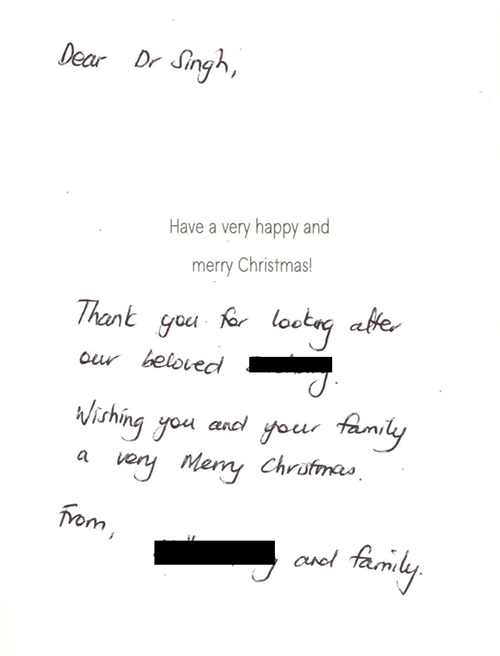 Dear Dr Singh,
Have a very happy and
merry Christmas!
Thank you for looking after
our beloved
Wishing you and your family
a very Merry Christmas.
From,
and family.